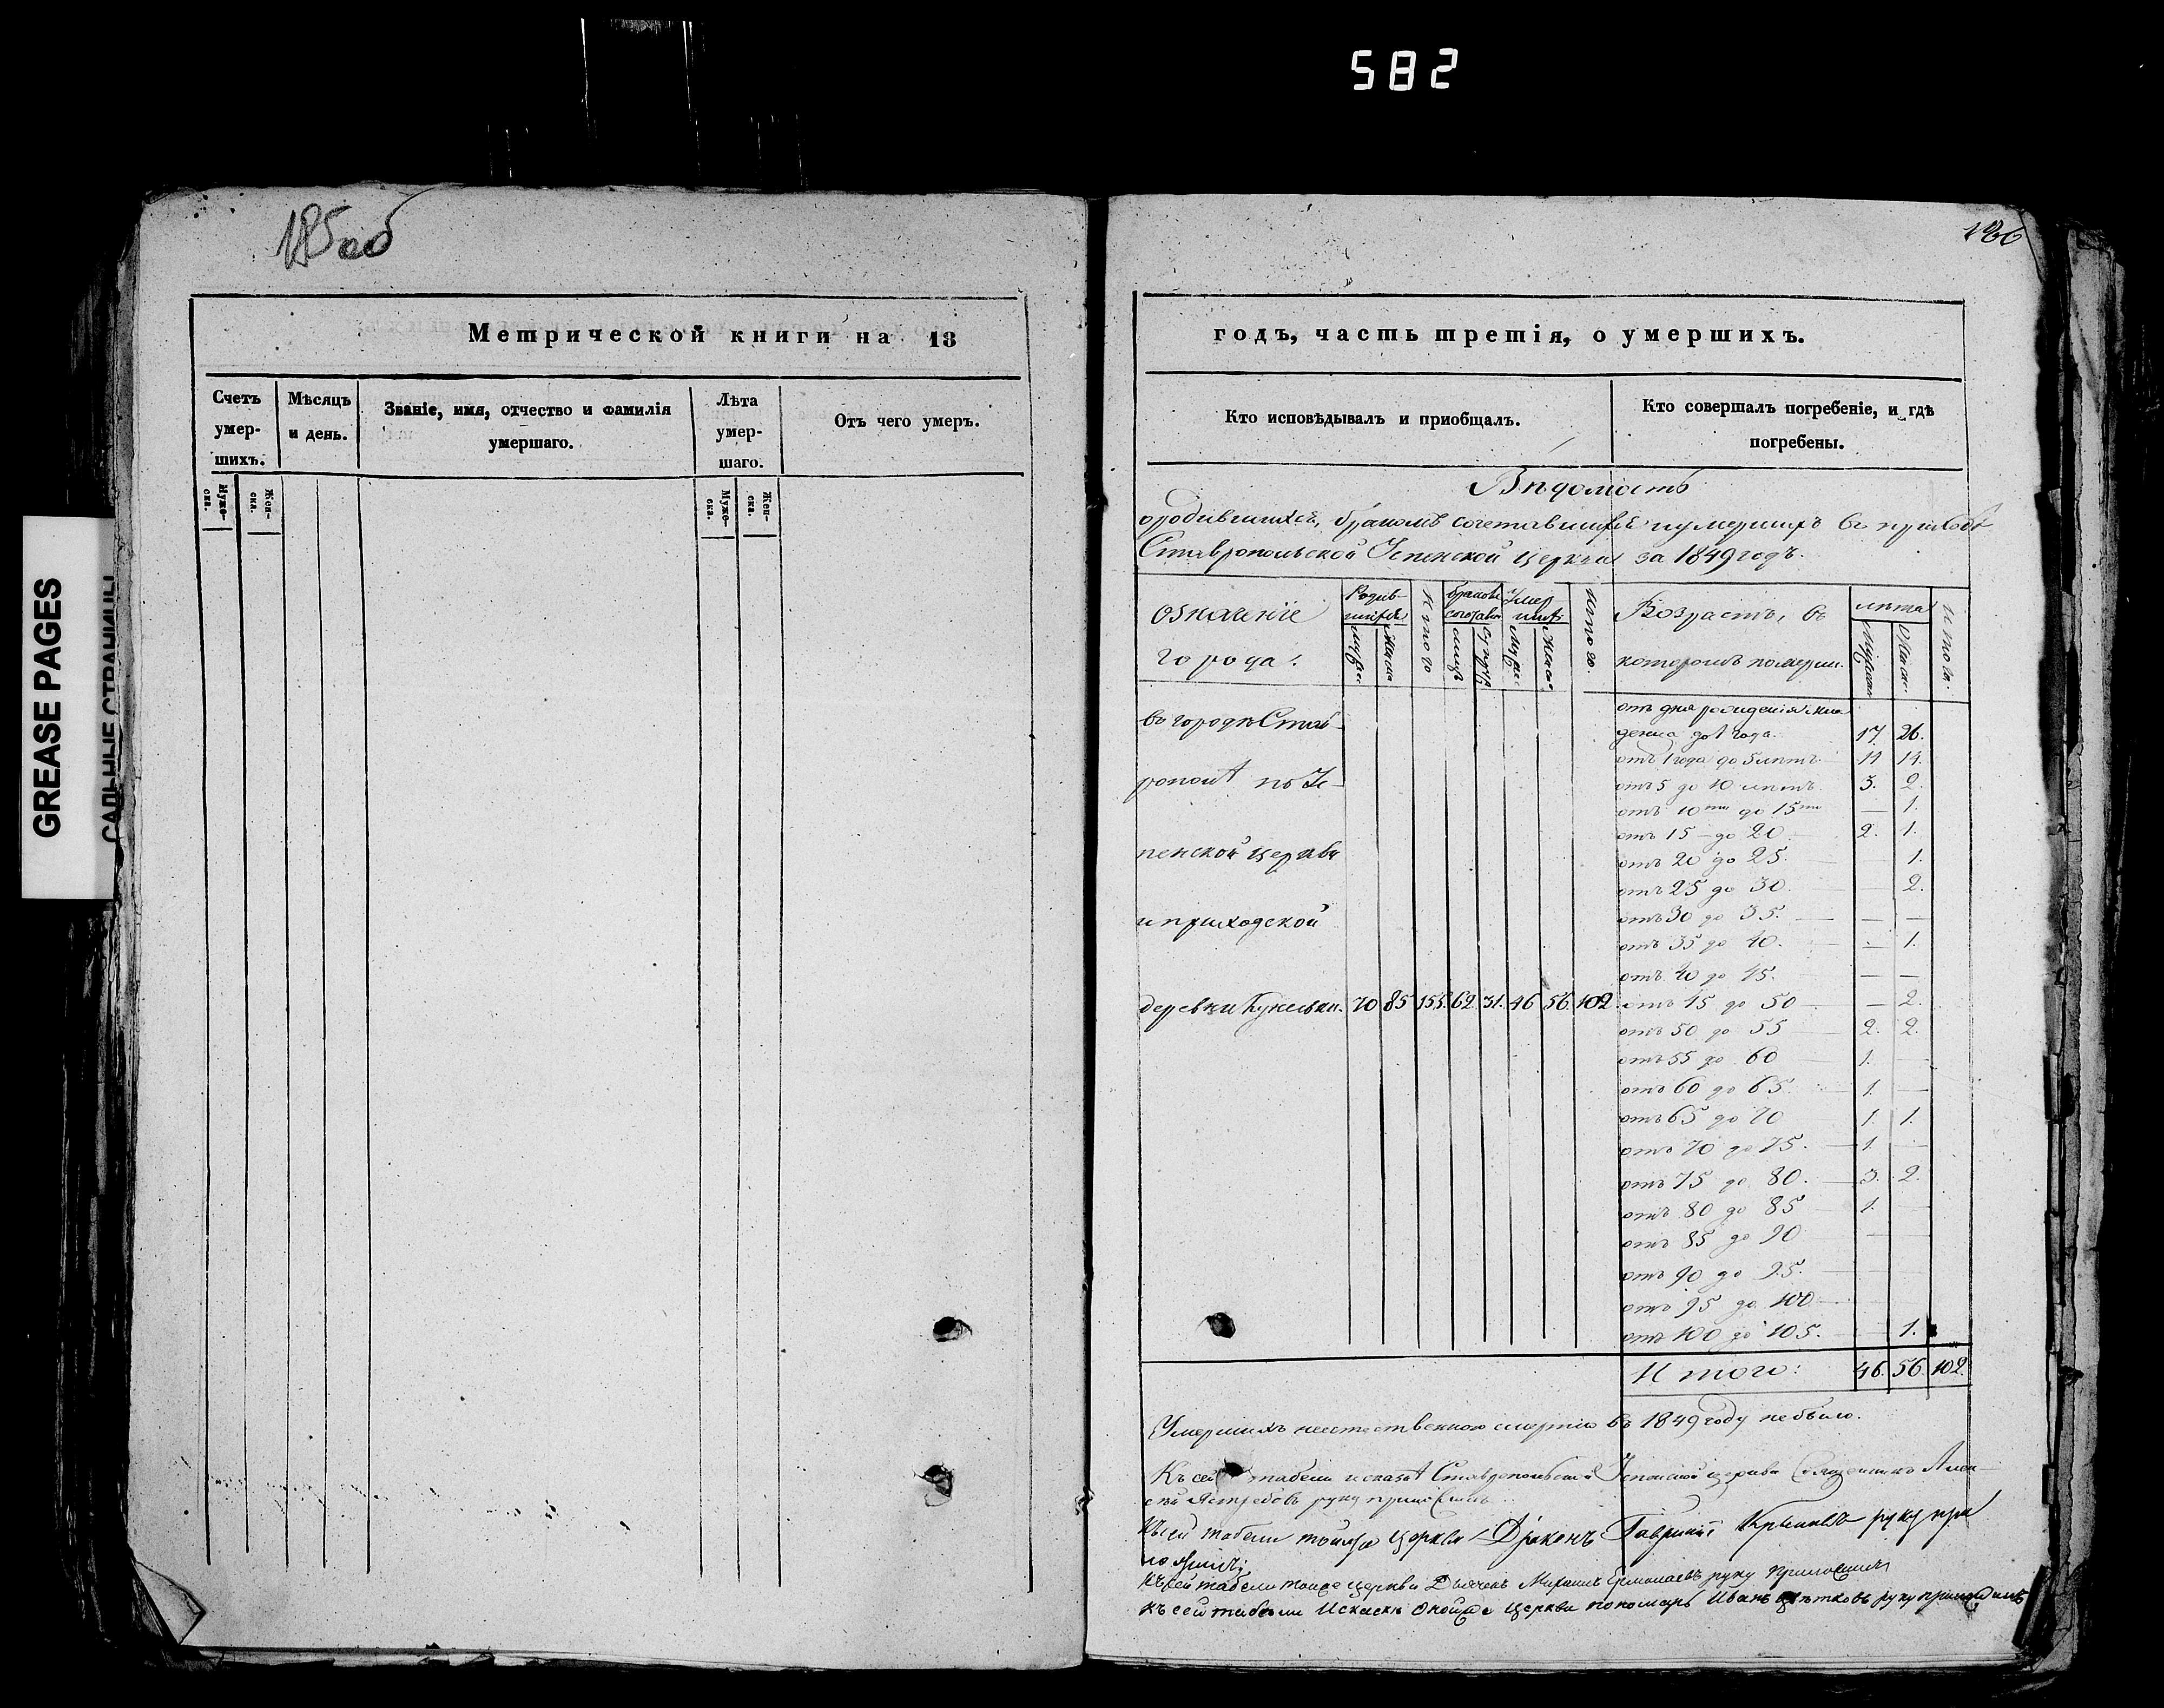 582
GREASE PAGES
САЛЬНЫЕ СТРАНИЦЫ
185об
Метрической книги на 18
Счетъ умер-шихъ.
Мѣсяцъ и день.
Званіе, имя, отчество и фамилія умершаго.
Лѣта умер-шаго.
Отъ чего умеръ.
Муже-ска.
Жен-ска.
Муже-ска.
Жен-ска.
186
годъ, часть третія, о умершихъ.
Кто исповѣдывалъ и пріобщалъ.
Кто совершалъ погребеніе, и гдѣ погребены.
Вѣдомость
о родившихся, бракомъ сочетавшихся и умершихъ въ приходѣ
Ставропольской Успенской церкви за 1849 годъ.
Означеніе города.
Родив-шихся
Итого
Умер-шихъ
Итого.
Возрастъ, въ которомъ померли.
лѣта
Итого.
въ городѣ Став-
рополѣ по Ус-
пенской церкви
и приходской
деревни 70 85 155. 62. 31. 46 56. 102.
отъ дня рожденія мла
денца до 1 года. 17. 26.
отъ 1 года до 5 лѣтъ. 11 14.
отъ 5 до 10 лѣтъ. 3. 2.
отъ 10ти до 15ти — 1.
отъ 15 – до 20 2. 1.
отъ 20 до 25. — 1.
отъ 25 до 30. — 2.
отъ 30 до 35. — —
отъ 35 до 40. — 1.
отъ 40 до 45. — —
отъ 45 до 50 — 2.
отъ 50 до 55 2. 2.
отъ 55 до 60 1. —
отъ 60 до 65. 1. —
отъ 65 до 70 1. 1.
отъ 70 до 75. 1. —
отъ 75 до 80. 3. 2.
отъ 80 до 85 1. —
отъ 85 до 90 — —
отъ 90 до 95. —
отъ 95 до 100 —
отъ 100 до 105. — 1.
Итого: 46. 56. 102.
Умершихъ неестественною смертію въ 1849 году не было.
Къ сей табели Ставропольской Успенской церкви Священникъ Алек-
сѣй Ястребовъ руку приложилъ.
Къ сей табели тойже церкви Діаконъ Гавріилъ руку при
ложилъ;
Къ сей табели тойже церкви Дьячекъ Михаилъ Ермолаевъ руку приложилъ
Къ сей табели церкви пономарь Иванъ Цвѣтковъ руку приложилъ